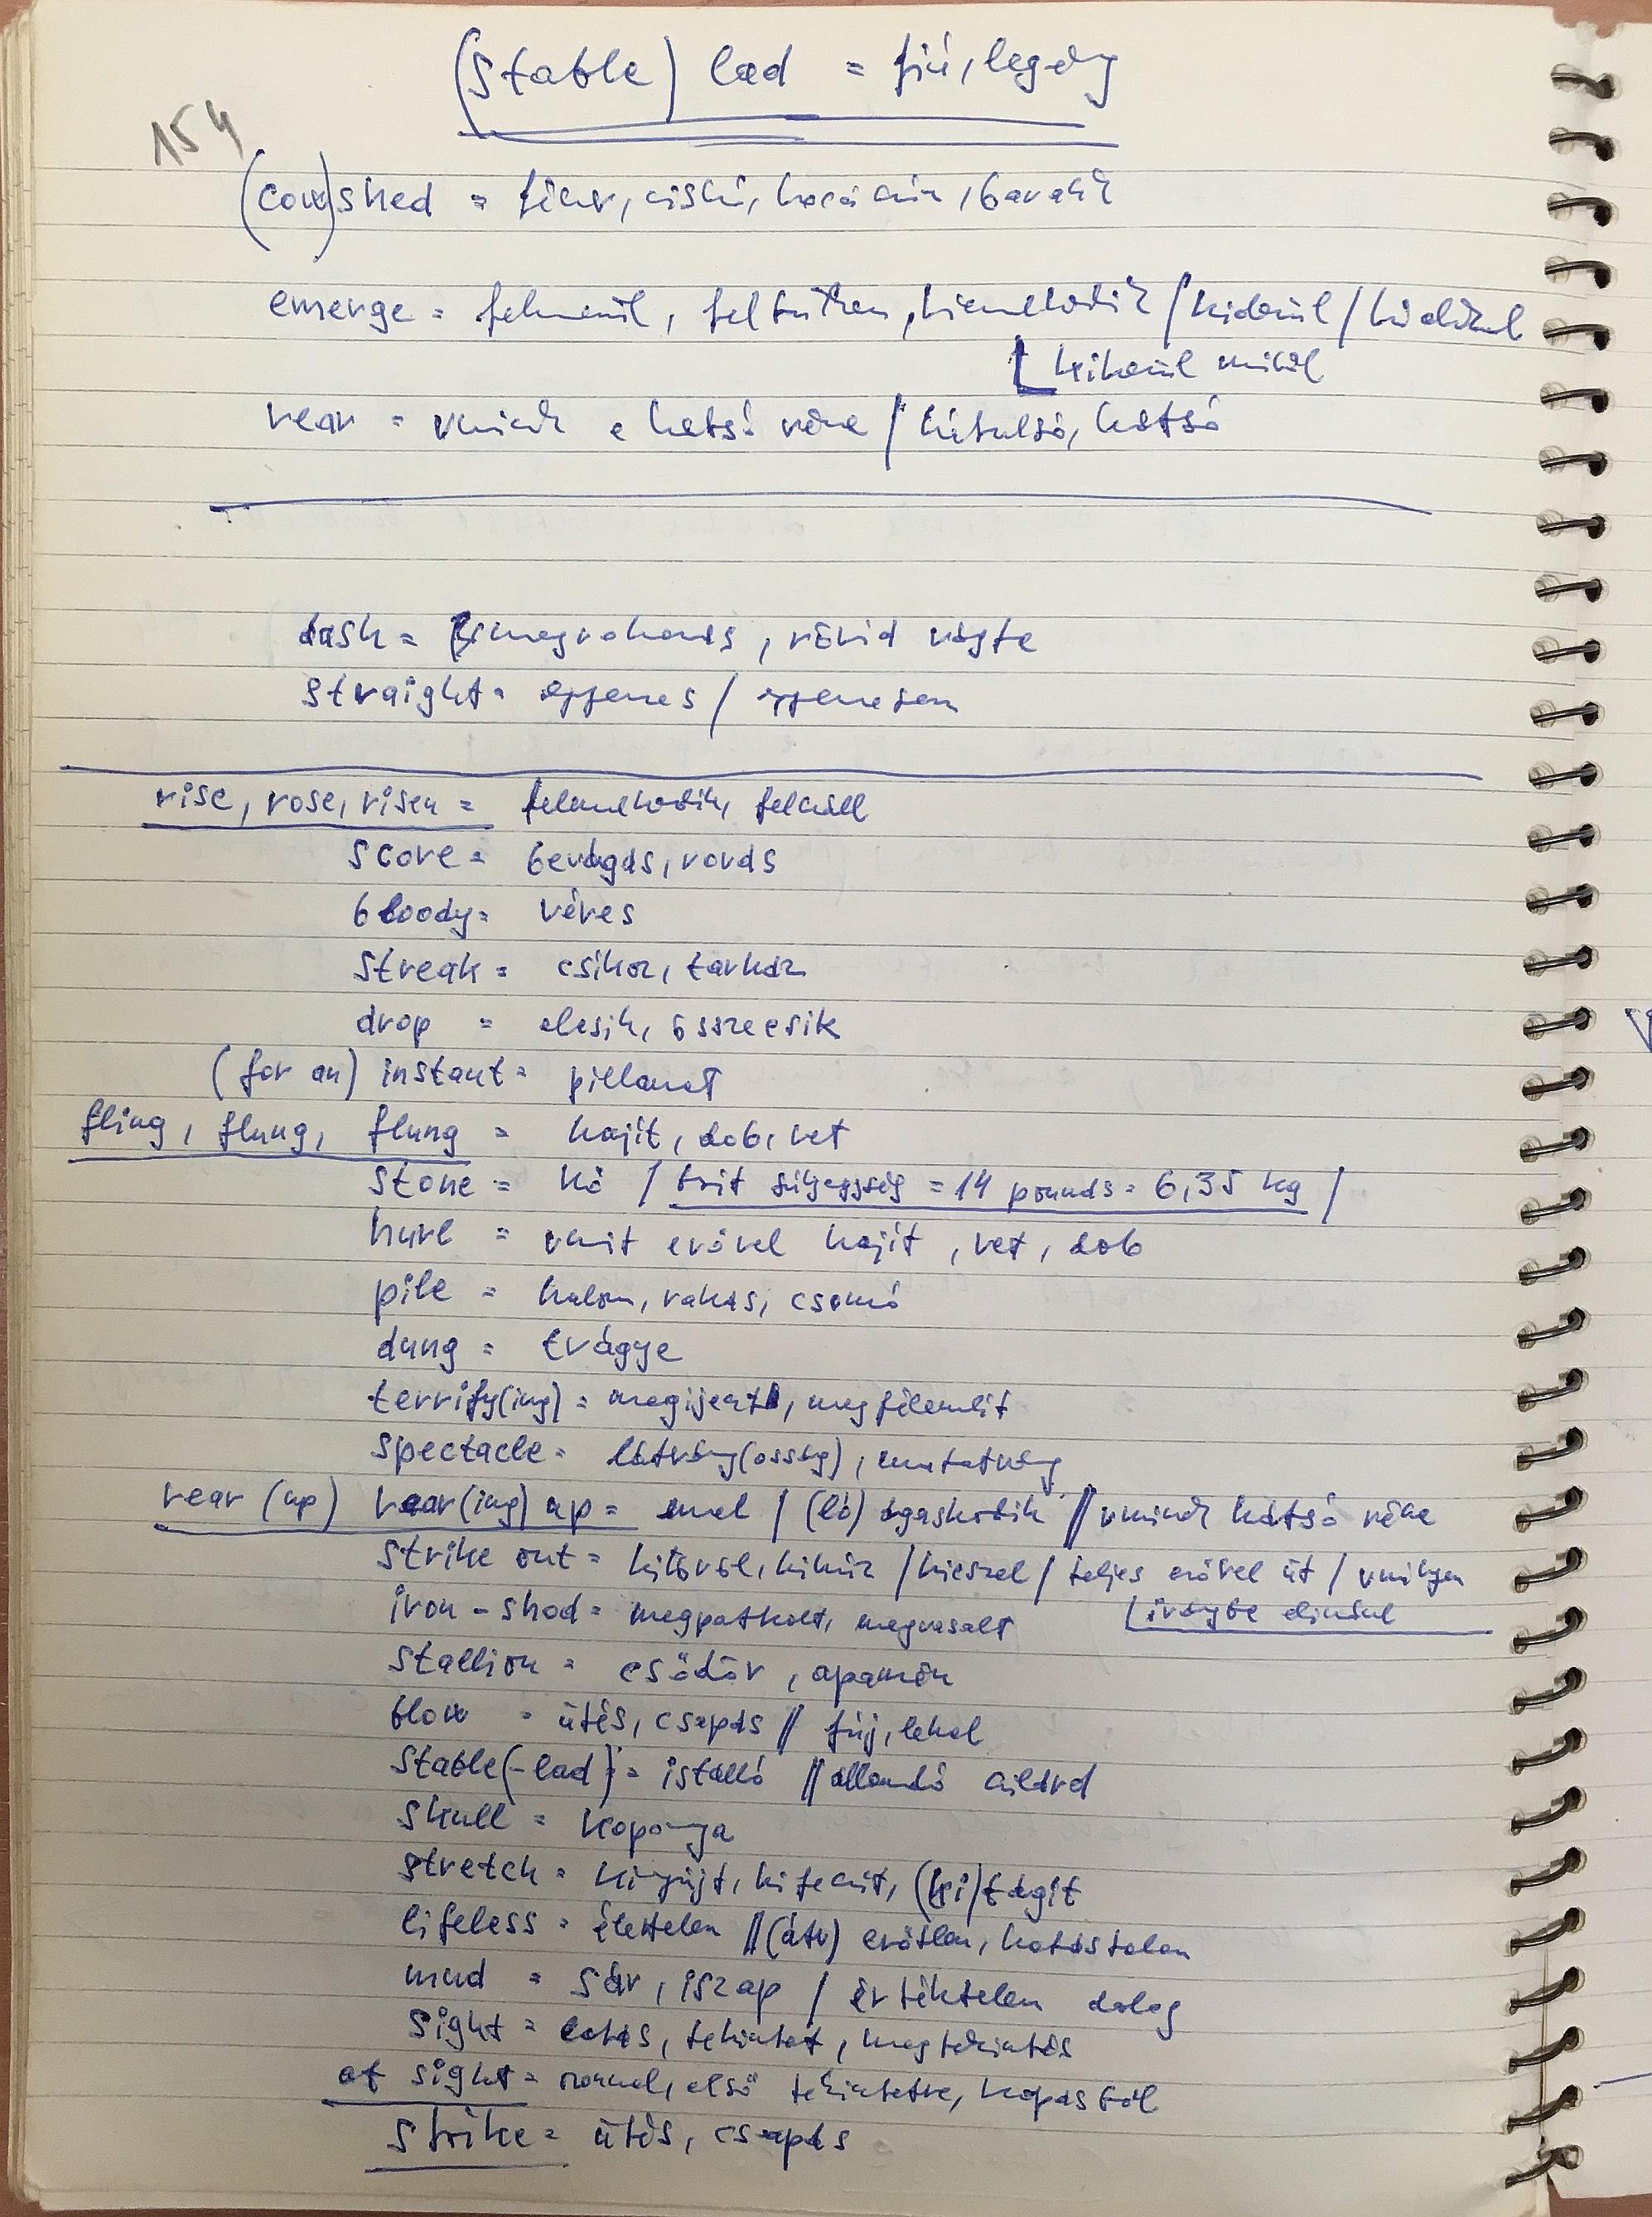 (stable) lad = fiú, legény
154
(cow)shed = fészer, viskó, barakk
emerge = felmerül, feltűnik, kiemelkedik / kiderül / kialakul
kikerül miből
rear = vminek a hátsó része / hátulsó, hátsó
dash = megrohanás, rövid vágta
straight = egyenes / egyenesen
rise, rose, risen = felemelkedik, feláll
score = bevágás, rovás
bloody = véres
streak = csíkoz, tarkáz
drop = elesik, összeesik
(for an) instant = pillanat
fling, flung, flung = hajít, dob, vet
stone = kő / brit súlyegység = 14 pounds = 6,35 kg /
hurl = vmit erővel hajít, vet, dob
pile = halom, rakás, csomó
dung = trágya
terrify(ing) = megijeszt, megfélemlít
spectacle = látvány(osság), mutatvány
rear (up) rear(ing) up = emel / (ló) ágaskodik // vminek hátsó része
strike out = kitöröl, kihúz / kieszel / teljes erővel üt / vmilyen
irányba elindul
iron-shod = megpatkolt, megvasalt
stallion = csődör, apamén
blow = ütés, csapás // fúj, lehel
stable(-lad) = istálló // állandó szilárd
skull = koponya
stretch = kinyújt, kifeszít, (ki)tágít
lifeless = élettelen // (átv) erőtlen, hatástalan
mud = sár, iszap / értéktelen dolog
sight = látás, tekintet, megtekintés
at sight = azonnal, első tekintetre, kapásból
strike = ütés, csapás